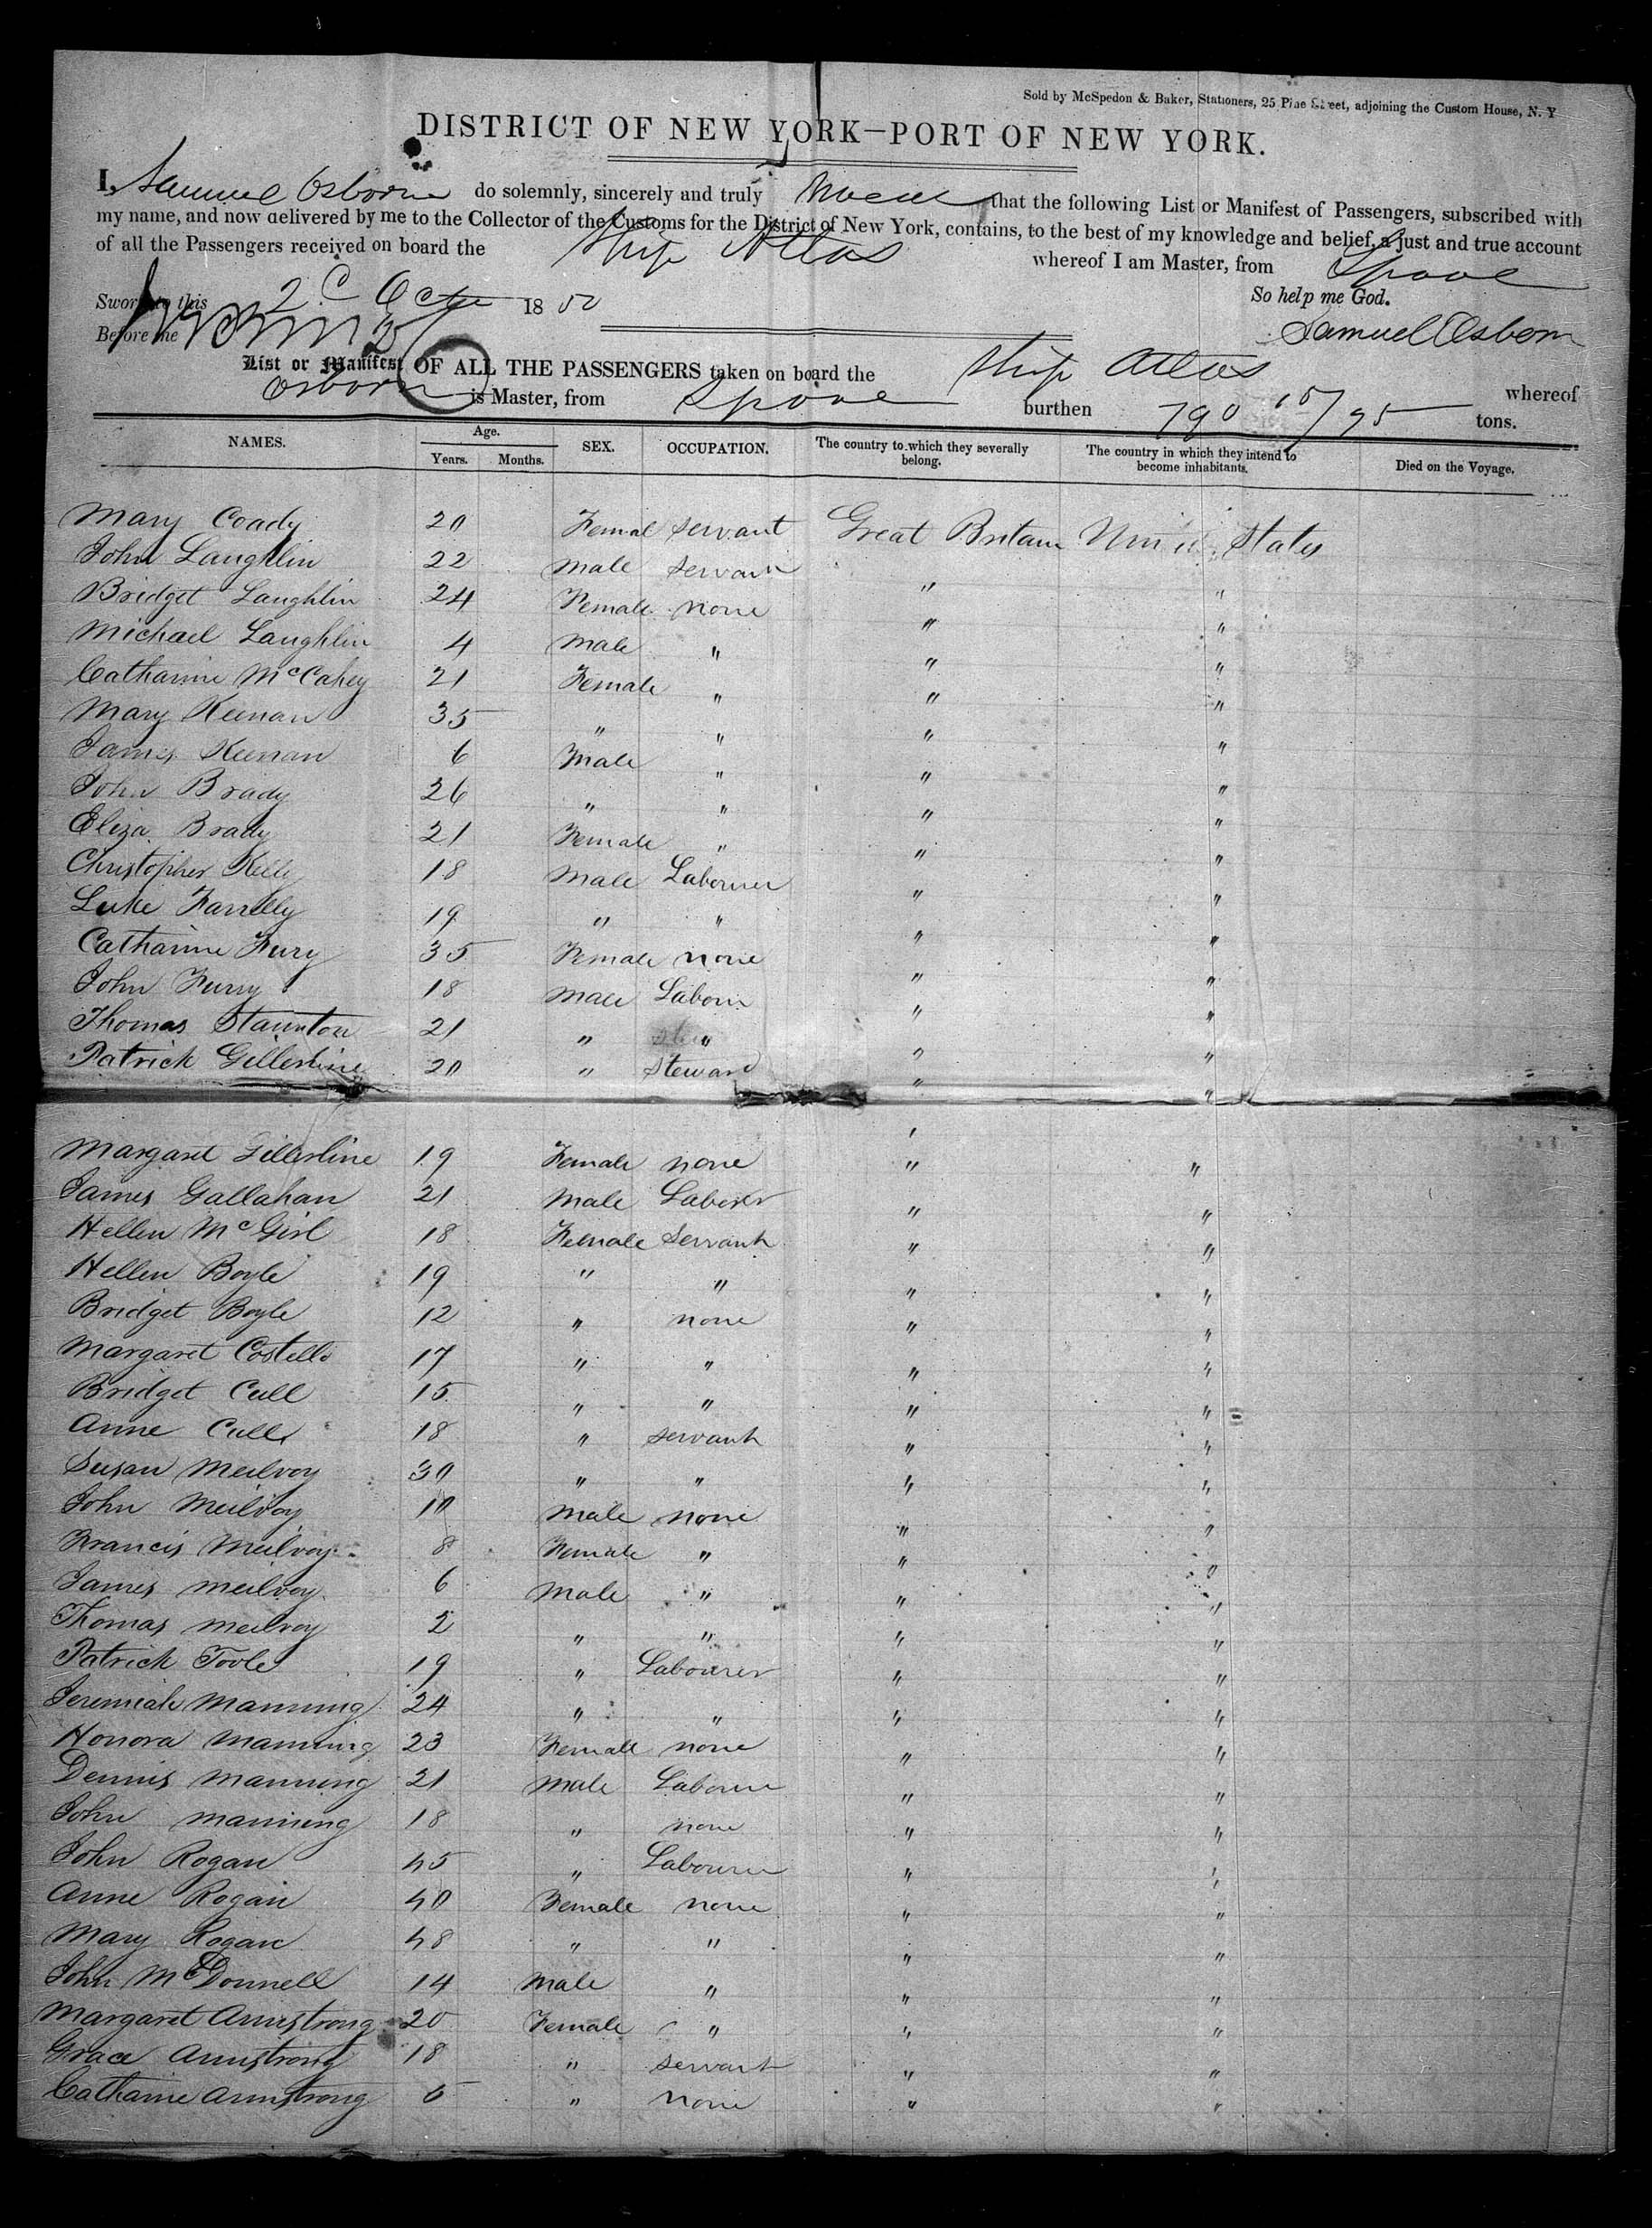 Sold by McSpedon & Baker, Stationers, 25 Pine Street, adjoining the Custom House, N. Y
DISTRICT OF NEW YORK—PORT OF NEW YORK.
I, Samuel Osborn do solemnly, sincerely and truly swear that the following List or Manifest of Passengers, subscribed with
my name, and now delivered by me to the Collector of the Customs for the District of New York, contains, to the best of my knowledge and belief, a just and true account
of all the Passengers received on board the Ship Atlas whereof I am Master, from Lpool
Sworn to this Octr 1850 So help me God.
Before me Samuel Osborn
List or Manifest OF ALL THE PASSENGERS taken on board the Ship Atlas whereof
Osborn is Master, from Lpool burthen 790 /95 tons.
NAMES. Age. Years. Months. SEX. OCCUPATION. The country to which they severally belong. The country in which they intend to become inhabitants. Died on the Voyage.
Mary Coady 20 Femal servant Great Britain United States
John Laughlin 22 male servant " "
Bridget Laughlin 24 Female none " "
Michael Laughlin 4 male " " "
Catharine McCahey 21 Female " " "
Mary Keenan 35 " " " "
James Keenan 6 Male " " "
John Brady 26 " " " "
Eliza Brady 21 Female " " "
Christopher Kelly 18 Male Labourer " "
Luke Farrelly 19 " " " "
Catharine Fury 35 Female none " "
John Furry 18 Male Labour " "
Thomas Staunton 21 " " " "
Patrick Gillerline 20 " Steward " "
Margaret Gillerline 19 Female none " "
James Gallahan 21 Male Laborer " "
Hellen McGirl 18 Female Servant " "
Hellen Boyle 19 " " " "
Bridget Boyle 12 " none " "
Margaret Costello 17 " " " "
Bridget Cull 15 " " " "
Anne Cull 18 " servant " "
Susan Meilvoy 30 " " " "
John Meilvoy 10 Male none " "
Francis Meilvoy 8 Female " " "
James meilvoy 6 Male " " "
Thomas meilvoy 2 " " " "
Patrick Toole 19 " Labourer " "
Jeremiah Manning 24 " " " "
Honora Manning 23 Female none " "
Dennis Manning 21 Male Labourer " "
John Manning 18 " none " "
John Rogan 45 " Labourer " "
Anne Rogan 40 Female none " "
Mary Rogan 48 " " " "
John McDonnell 14 Male " " "
Margaret Armstrong 20 Female " " "
Grace Armstrong 18 " servant " "
Catharine Armstrong 5 " none " "